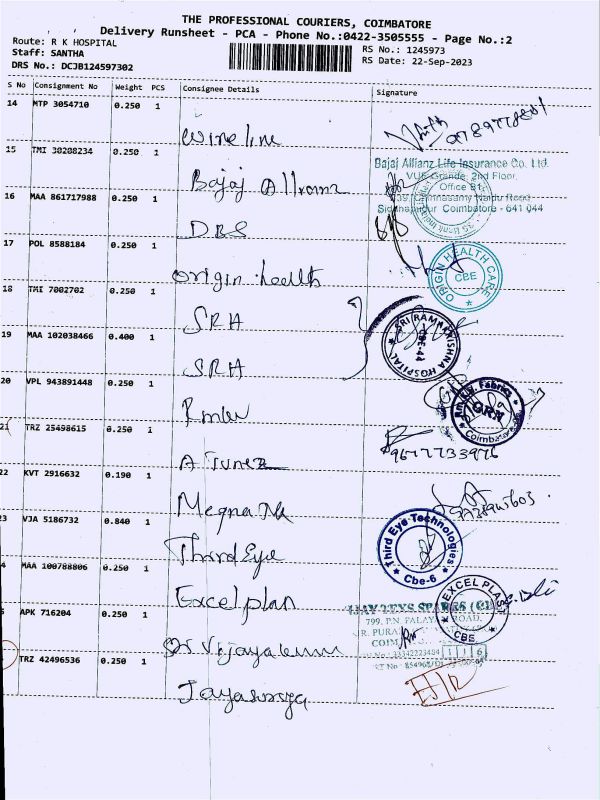 THE PROFESSIONAL COURIERS, COIMBATORE
Delivery Runsheet - PCA - Phone No.:0422-3505555 - Page No.:2
Route: R K HOSPITAL
Staff: SANTHA
DRS No.: DCJB124597302
RS No.: 1245973
RS Date: 22-Sep-2023
S No Consignment No Weight PCS Consignee Details Signature
14 MTP 3054710 0.250 1
Wineline
15 TMI 30208234 0.250 1
Bajaj Allianz Life Insurance Co. Ltd.
VUE Grande, 2nd Floor,
Office B1,
Coimbatore - 641 044
Bajaj
16 MAA 861717988 0.250 1
DBS
17 POL 8588184 0.250 1
Origin health
ORIGIN HEALTH CARE
CBE
18 TMI 7002702 0.250 1
SRH
SRI RAMAKRISHNA HOSPITAL
CBE-44
19 MAA 102038466 0.400 1
SRH
20 VPL 943891448 0.250 1
Fabrics
Coimbatore
21 TRZ 25498615 0.250 1
A Tunez
9677733976
22 KVT 2916632 0.190 1
Megna
23 VJA 5186732 0.840 1
Third Eye
Third Eye Technologies
Cbe-6
4 MAA 100788806 0.250 1
Excel plan
EXCEL PLAST
CBE
5 APK 716204 0.250 1
799, P.N. PALAYAM ROAD,
Dr Vijayakumar
TRZ 42496536 0.250 1
Jayasurya